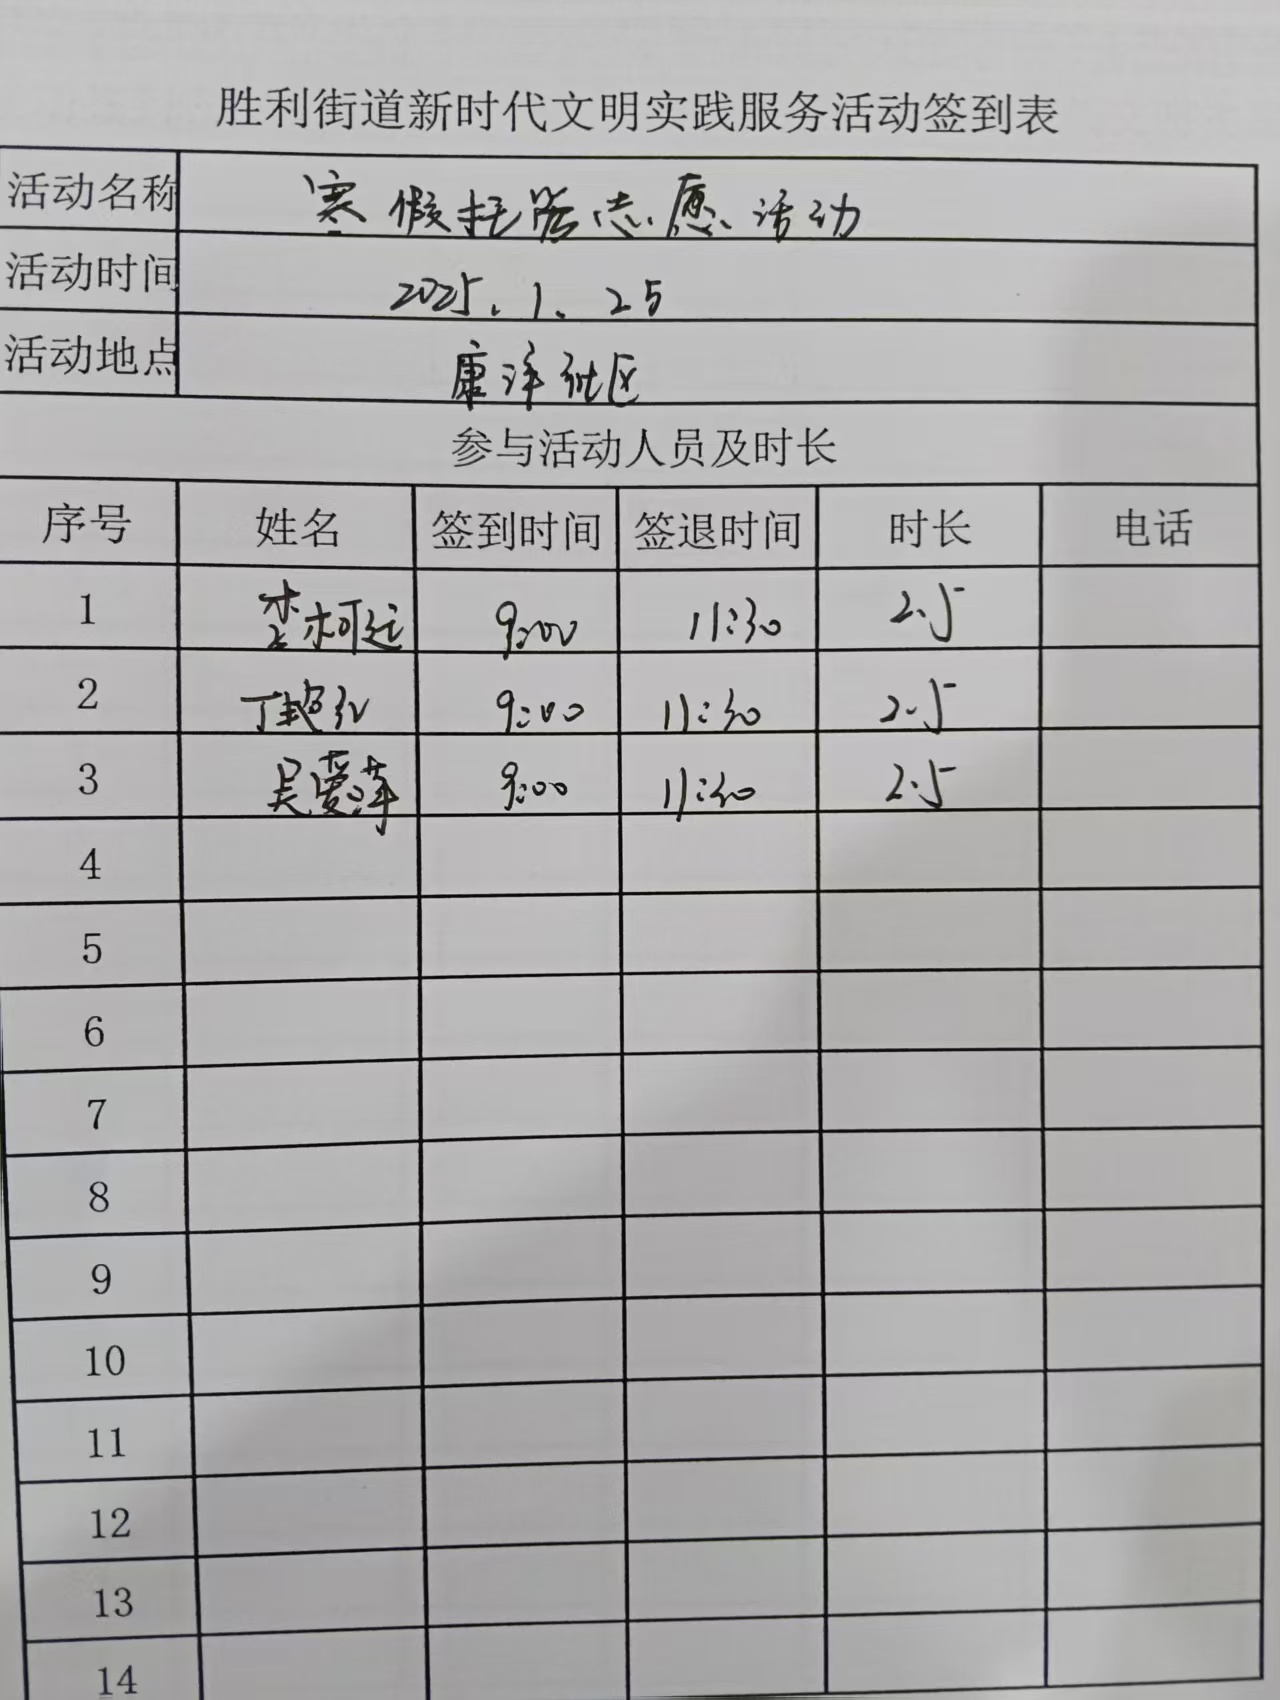 胜利街道新时代文明实践服务活动签到表
活动名称 寒假托管志愿活动
活动时间 2025.1.25
活动地点 康洋社区
参与活动人员及时长
序号 姓名 签到时间 签退时间 时长 电话
1 李柯远 9:00 11:30 2.5
2 丁 9:00 11:30 2.5
3 吴爱萍 9:00 11:30 2.5
4
5
6
7
8
9
10
11
12
13
14